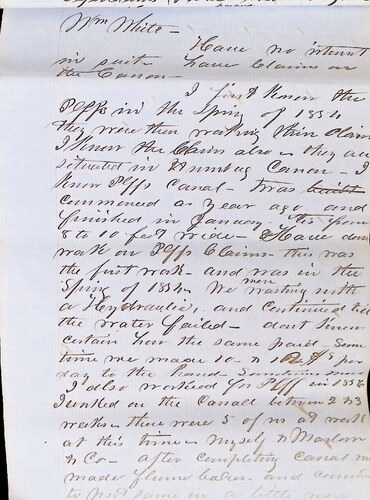 Wm White -
Have no interest
in suit - have Claims on
the Canon -
I first Know the
Plffs in the Spring of 1854
they were then working their Claims
I Know the Claims also - they are
situated in Humbug Canon - I
know Plffs Canal - was built
commenced a year ago and
finished in January. Tis from
8 to 10 feet wide - Have done
work on Plffs Claims - this was
the first work - and was in the
Spring of 1854. We were washing with
a Hydraulic, and continued till
the water failed - dont Know
certain how the same paid - Some
time we made 10 to 12 $ per
day to the hand - Sometimes more
I also worked for Plff in 1856
I worked on the Canall between 2 & 3
weeks - there were 5 of us at work
at this time - myself & Marlow
& Co - after completing canal we
made flume boxes - and
to put same in a little